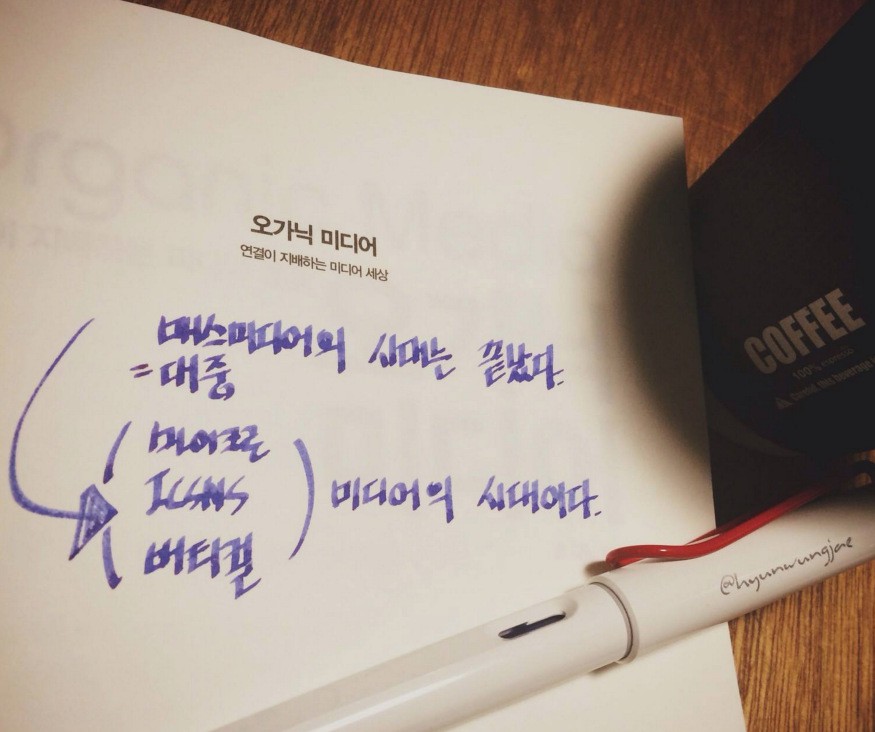 오가닉 미디어
연결이 지배하는 미디어 세상
매스미디어의 시대는 끝났다.
= 대중
마이크로
미디어의 시대이다.
버티컬
COFFEE
100%
@hyunwungjae